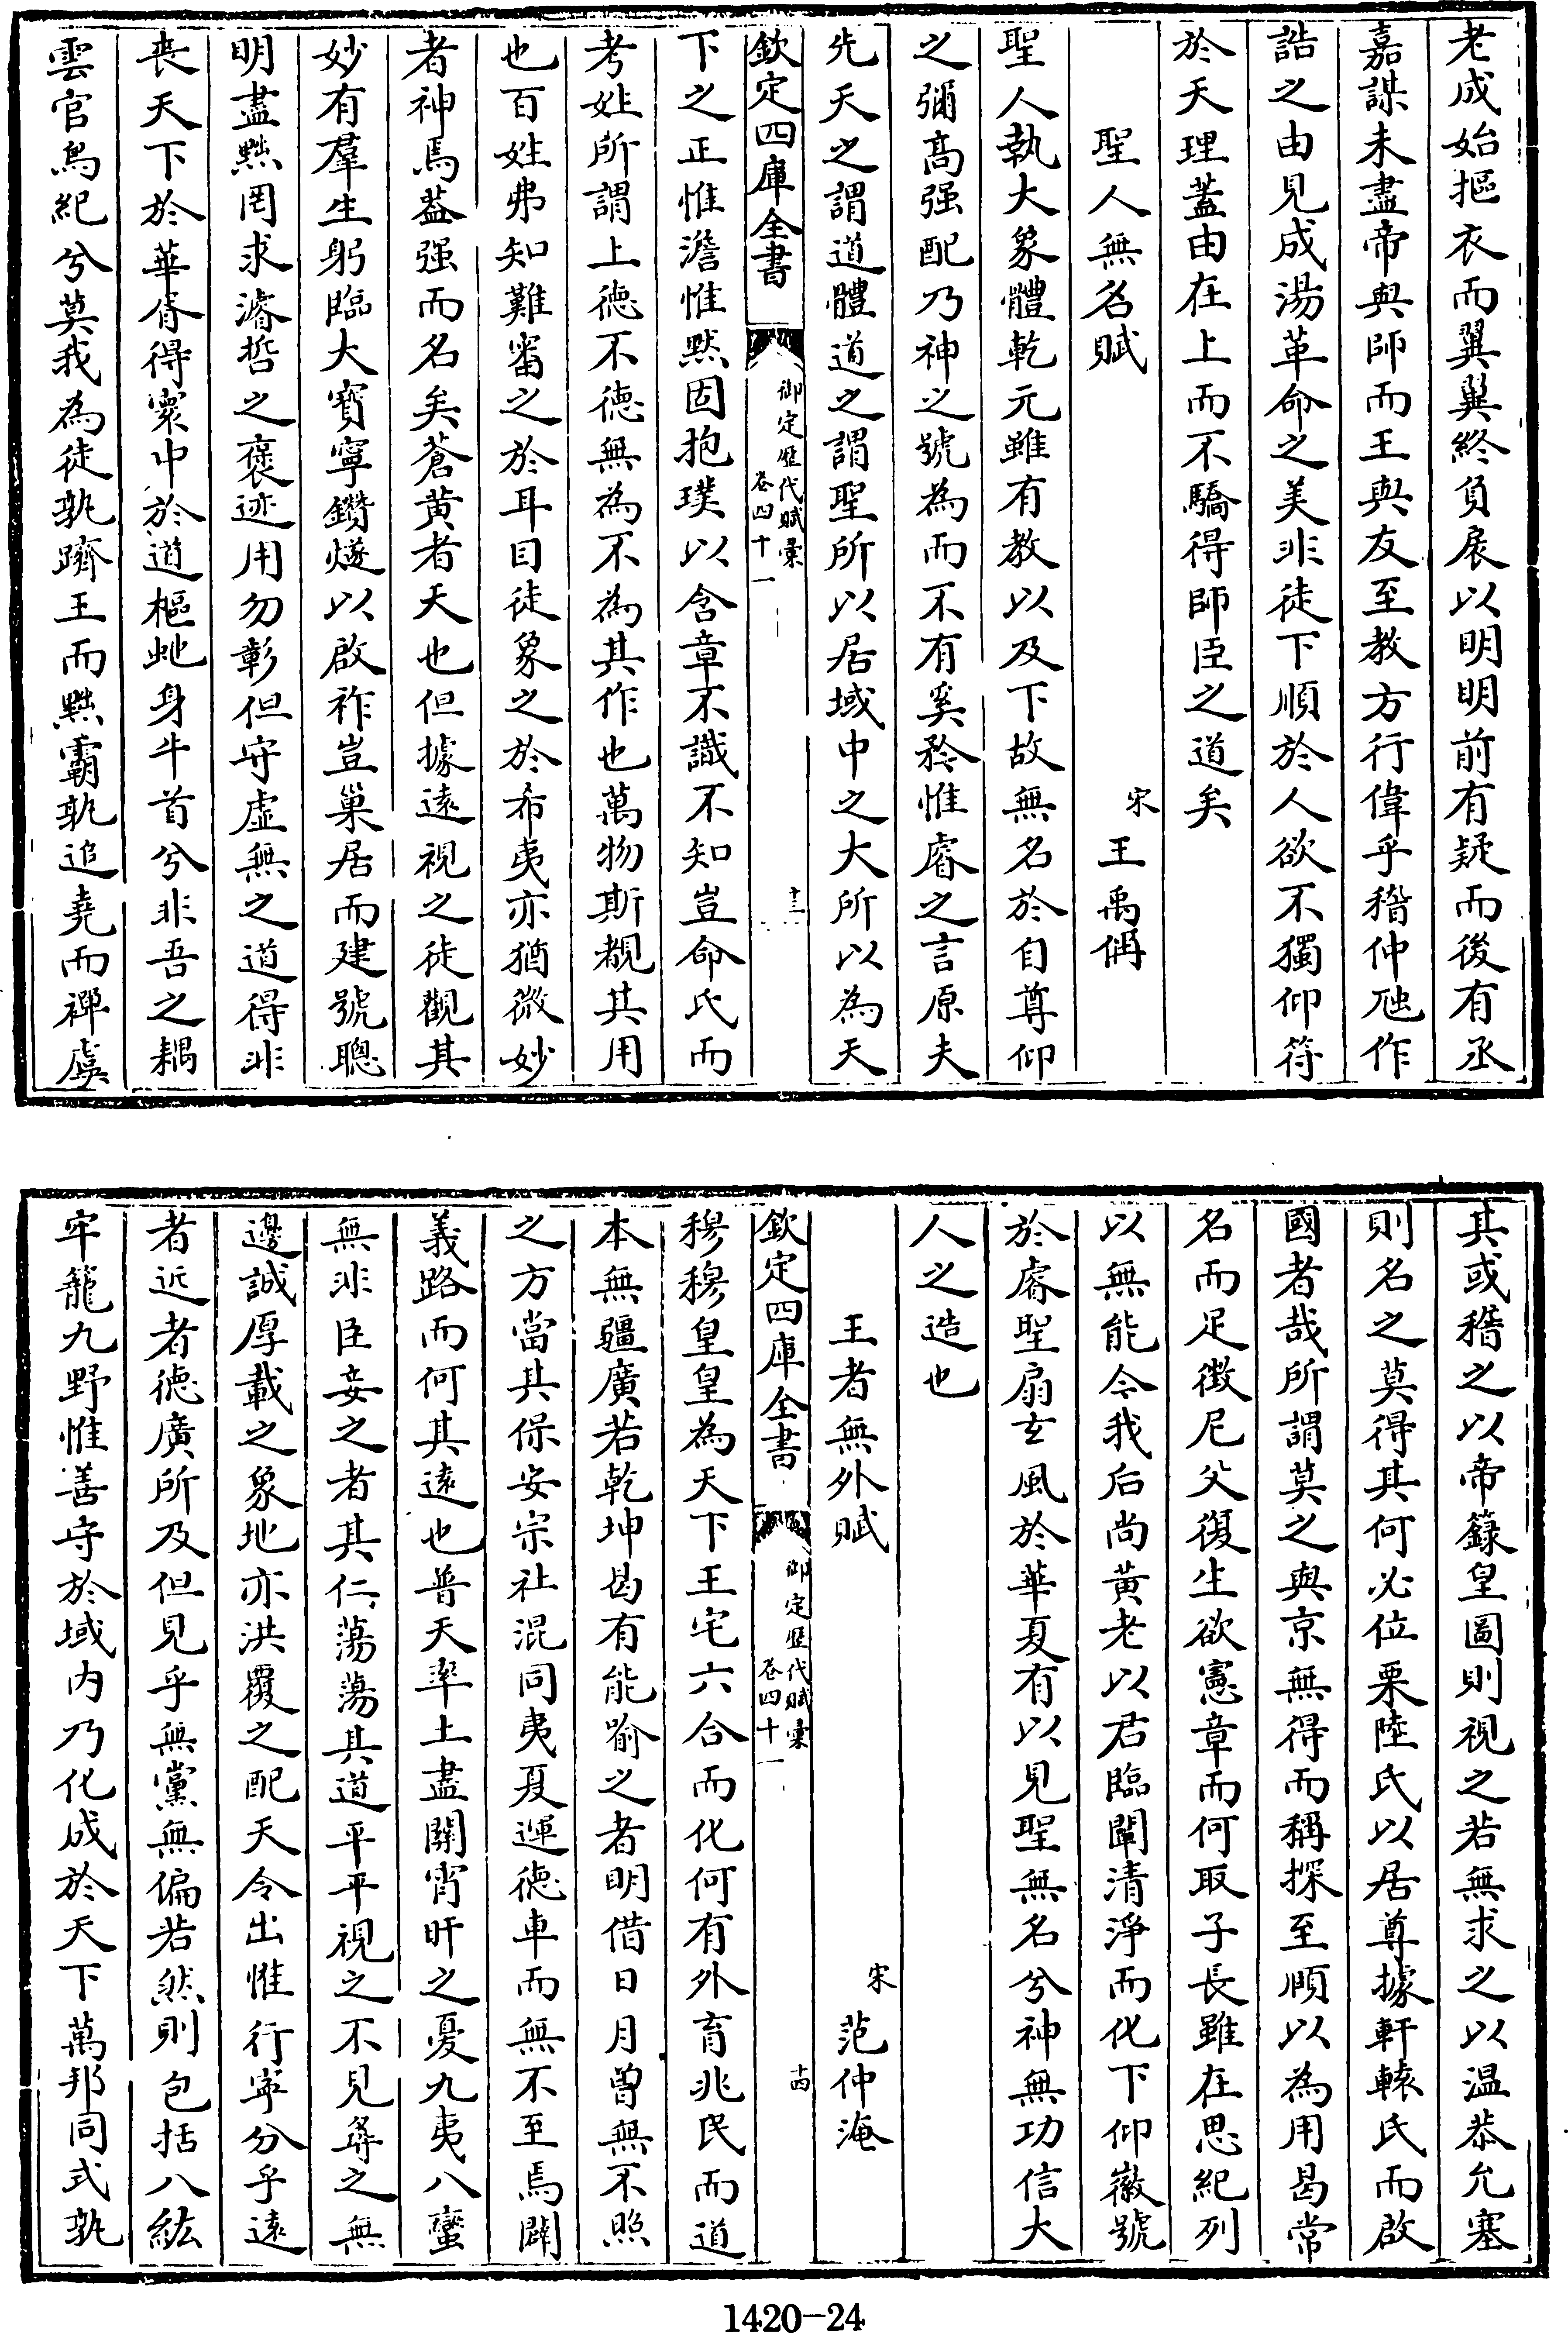 老成始摳衣而翼翼終負扆以明明前有疑而後有丞
嘉謀未盡帝與師而王與友至教方行偉乎稽仲虺作
誥之由見成湯革命之美非徒下順於人欲不獨仰符
於天理蓋由在上而不驕得師臣之道矣
聖人無名賦
宋王禹偁
聖人執大象體乾元雖有教以及下故無名於自尊仰
之彌高强配乃神之號為而不有奚矜惟睿之言原夫
先天之謂道體道之謂聖所以居域中之大所以為天
欽定四庫全書
御定歷代賦彙
卷四十一
十三
下之正惟澹惟默固抱璞以含章不識不知豈命氏而
考姓所謂上德不德無為不為其作也萬物斯覩其用
也百姓弗知難審之於耳目徒象之於希夷亦猶微妙
者神焉蓋强而名矣蒼黄者天也但據逺視之徒觀其
妙有羣生躬臨大寶寧鑽燧以啟祚豈巢居而建號聰
明盡黜罔求濬哲之褒迹用勿彰但守虚無之道得非
喪天下於華胥得寰中於道樞虵身牛首兮非吾之耦
雲官鳥紀兮莫我為徒孰躋王而黜霸孰追堯而禪虞
其或稽之以帝籙皇圖則視之若無求之以温恭允塞
則名之莫得其何必位栗陸氏以居尊據軒轅氏而啟
國者哉所謂莫之與京無得而稱探至順以為用曷常
名而足徴尼父復生欲憲章而何取子長雖在思紀列
以無能今我后尚黄老以君臨闡清淨而化下仰徽號
於睿聖扇玄風於華夏有以見聖無名兮神無功信大
人之造也
王者無外賦
宋范仲淹
欽定四庫全書
御定歷代賦彙
卷四十一
十四
穆穆皇皇為天下王宅六合而化何有外育兆民而道
本無疆廣若乾坤曷有能喻之者明借日月曾無不照
之方當其保安宗社混同夷夏運德車而無不至焉闢
義路而何其逺也普天率土盡關宵旰之憂九夷八蠻
無非臣妾之者其仁蕩蕩其道平平視之不見尋之無
邊誠厚載之象地亦洪覆之配天令出惟行寧分乎逺
者近者德廣所及但見乎無黨無偏若然則包括八紘
牢籠九野惟善守於域内乃化成於天下萬邦同式孰
1420-24